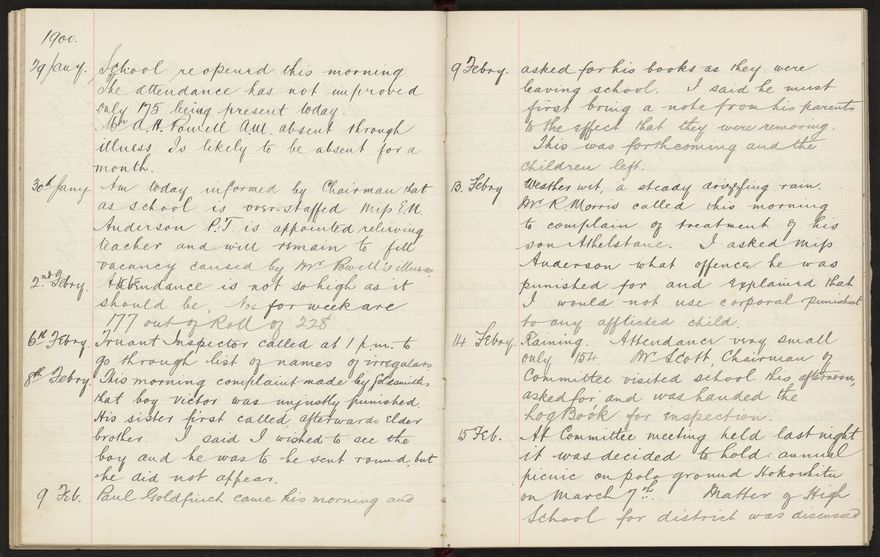 1900.
29 Jany. School reopened this morning
The attendance has not improved
only 175 being present today.
Mr A.H. Powell absent through
illness Is likely to be absent for a
month.
30th Jany Am today informed by Chairman that
as school is over-staffed Miss E.M.
Anderson P.T. is appointed relieving
teacher and will remain to fill
vacancy caused by Mr Powell's illness
2nd Febry. Attendance is not so high as it
should be, for week are
177 out of Roll of 228
6th Febry. Truant Inspector called at 1 p.m. to
go through list of names of irregulars
8th Febry. This morning complaint made by Goldsmiths
that boy Victor was unjustly punished.
His sister first called, afterwards Elder
brother. I said I wished to see the
boy and he was to be sent round, but
he did not appear.
9 Feb. Paul Goldfinch came this morning and
9 Febry. asked for his books as they were
leaving school. I said he must
first bring a note from his parents
to the effect that they were removing.
This was forthcoming and the
children left.
13. Febry Weather wet, a steady drizzling rain.
Mr R. Morris called this morning
to complain of treatment of his
son Athelstane. I asked Miss
Anderson what offence he was
punished for and explained that
I would not use corporal punishment
to any afflicted child.
14 Febry. Raining. Attendance very small
only 154. Mr Scott, Chairman of
Committee visited school this afternoon,
asked for and was handed the
Log Book for inspection.
15 Feb. At Committee meeting held last night
it was decided to hold annual
picnic on polo ground Hokowhitu
on March 7th. Matter of High
School for district was discussed